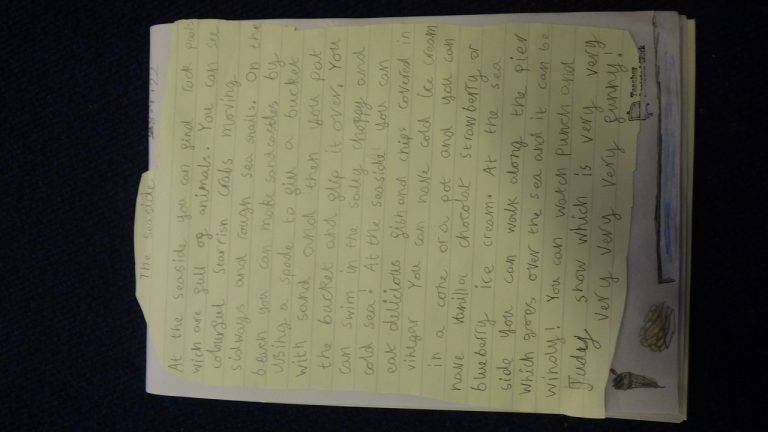 The seaside
At the seaside you can find rock pools
wich are full of animals. You can see
colourful starfish crabs moving
sidways and rough sea snails. On the
beach you can make sandcastles by
using a spade to fill a bucket
with sand and then you pat
the bucket and flip it over. You
can swim in the salty choppy and
cold sea! At the seaside you can
eat delicious fish and chips covered in
vinegar You can have cold ice cream
in a cone or a pot and you can
have vanilla chocolat strawberry or
blueberry ice cream. At the sea
side you can walk along the pier
which goes over the sea and it can be
windy! You can watch Punch and
Judy show which is very very
very very very very funny!